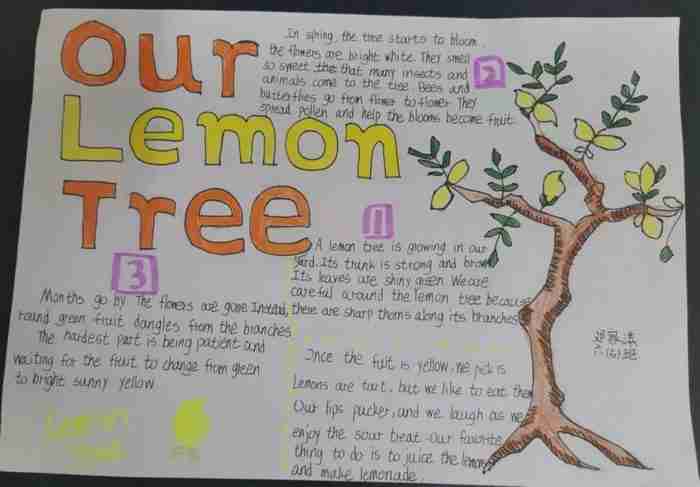 Our
Lemon
Tree
In spring, the tree starts to bloom.
the flowers are bright white. They smell
so sweet that many insects and
animals come to the tree. Bees and
butterflies go from flower to flower. They
spread pollen and help the blooms become fruit.
2
1
A lemon tree is growing in our
yard. Its trunk is strong and brown
Its leaves are shiny green. We are
careful around the lemon tree because
there are sharp thorns along its branches
3
Months go by. The flowers are gone. Instead,
round green fruit dangles from the branches
The hardest part is being patient and
waiting for the fruit to change from green
to bright sunny yellow.
Once the fuit is yellow, we pick is
Lemons are tart, but we like to eat them
Our lips pucker, and we laugh as we
enjoy the sour treat. Our favorite
thing to do is to juice the lemons
and make lemonade.
Lemon
tree